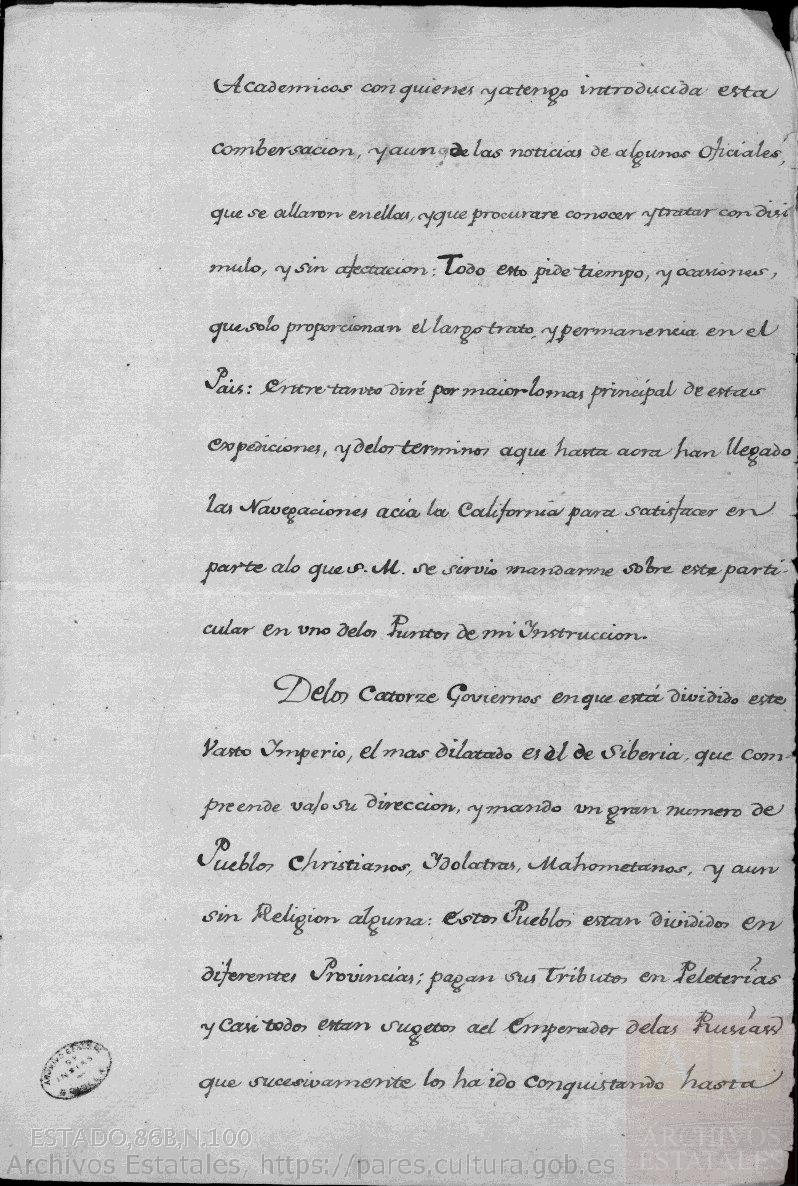 Academicos con quienes ya tengo introducida esta
combersacion, y aun de las noticias de algunos Oficiales,
que se allaron en ellas, y que procurare conocer y tratar con disi
mulo, y sin afectacion: Todo esto pide tiempo, y ocasiones,
que solo proporcionan el largo trato, y permanencia en el
Pais: Entre tanto diré por maior lo mas principal de estas
expediciones, y delos terminos a que hasta aora han llegado
las Navegaciones acia la California para satisfacer en
parte alo que S. M. se sirvio mandarme sobre este parti-
cular en uno delos Puntos de mi Instruccion.
Delos Catorze Goviernos en que está dividido este
Vasto Imperio, el mas dilatado es el de Siberia, que com-
preende vajo su direccion, y mando un gran numero de
Pueblos Christianos, Ydolatras, Mahometanos, y aun
sin Religion alguna: estos Pueblos estan divididos en
diferentes Provincias; pagan sus Tributos en Peleterías
y Casi todos estan sugetos ael Emperador delas Rusías
que sucesivamente los ha ido conquistando hasta
ARCHIVO GENERAL
DE
INDIAS
SEVILLA
ESTADO,86B,N.100
Archivos Estatales, https://pares.cultura.gob.es
ARCHIVOS
ESTATALES